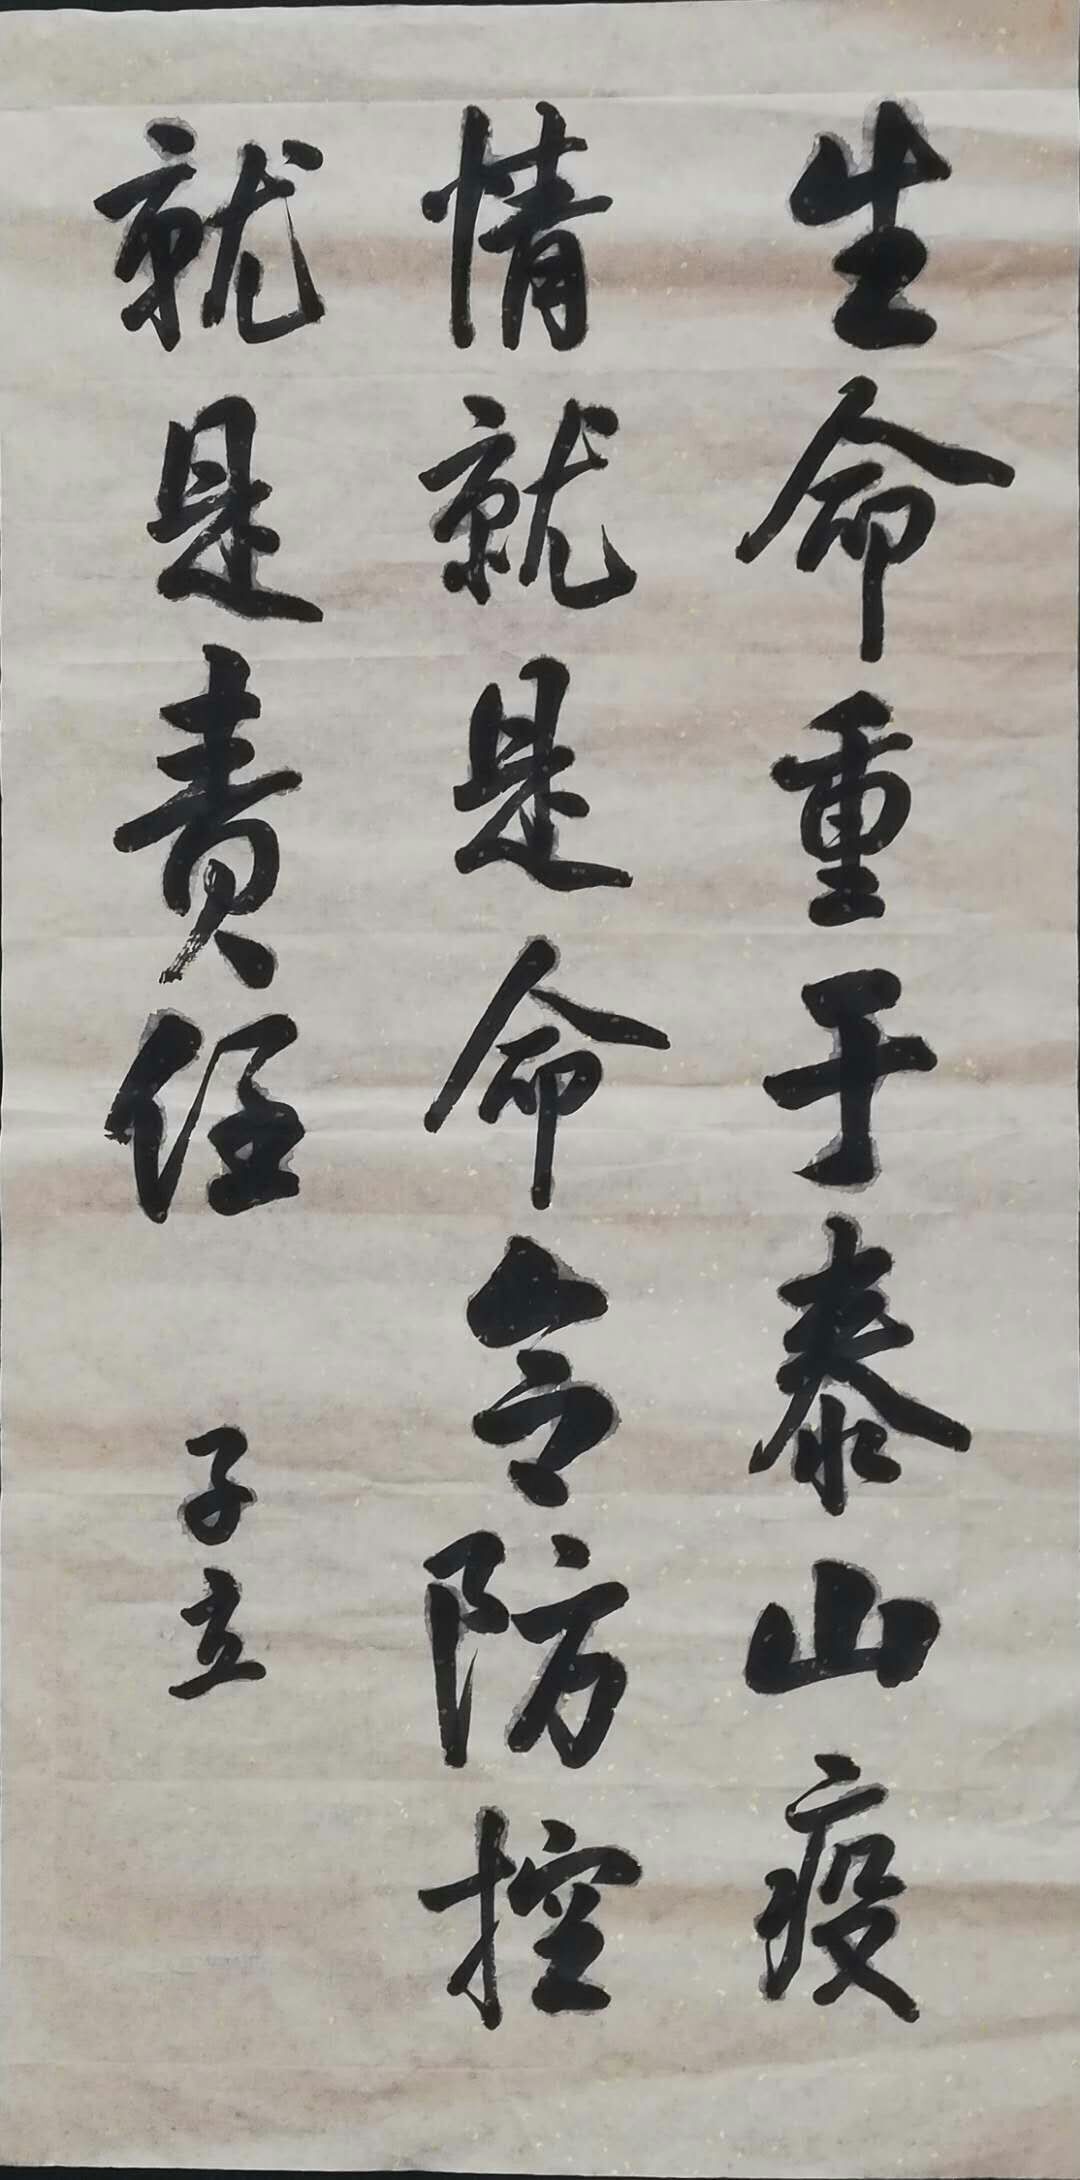 生命重于泰山疫
情就是命令防控
就是责任
子立